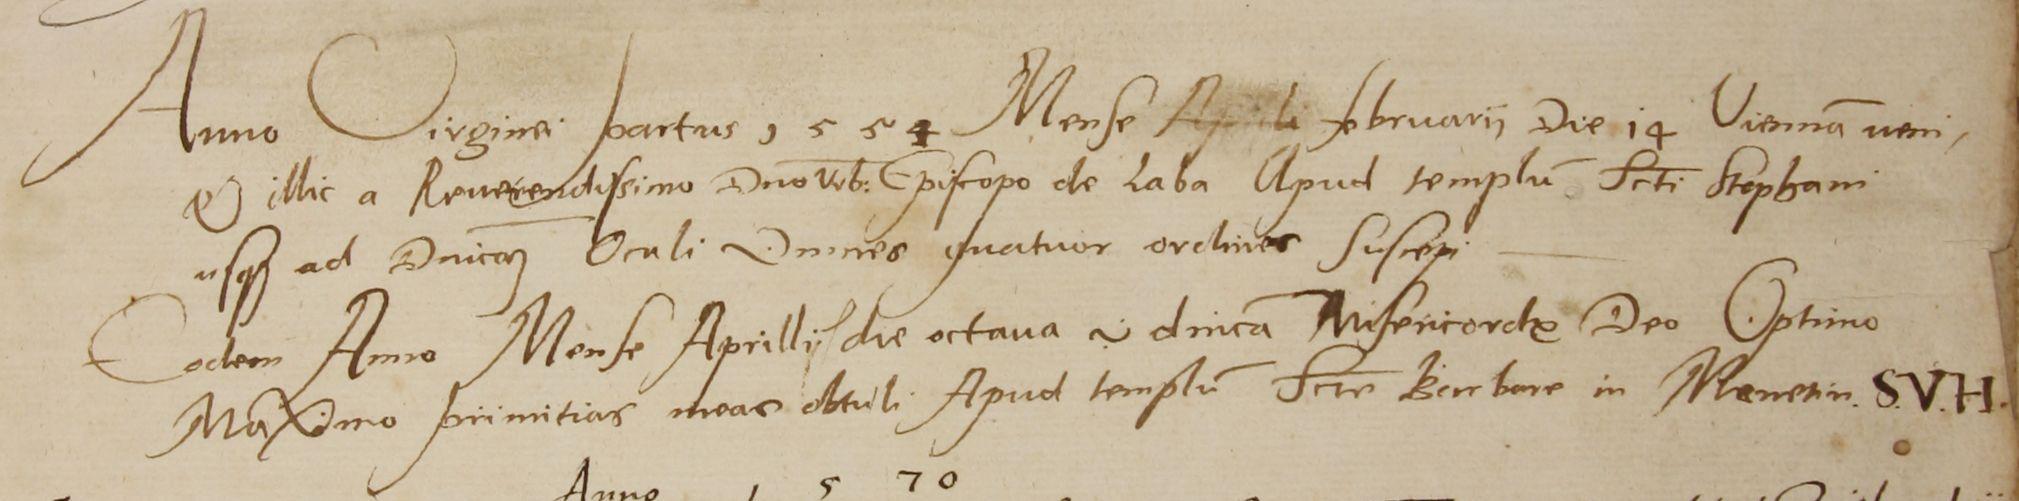 Anno Virginei partus 1554 Mense Aprili februarij Die 14 Viennā ueni,
& illic a Reuerendissimo Dño Vrb: Episcopo de Laba Apud templū Scti Stephani
usq ad Dnicam Oculi Omnes quatuor ordines Suscepi
Eodem Anno Mense Aprilli die octaua i dnicā Misericordie Deo Optimo
Maximo primitias meas obtuli Apud templū Scte Barbare in Manetin. S.V.H.
Anno 1570